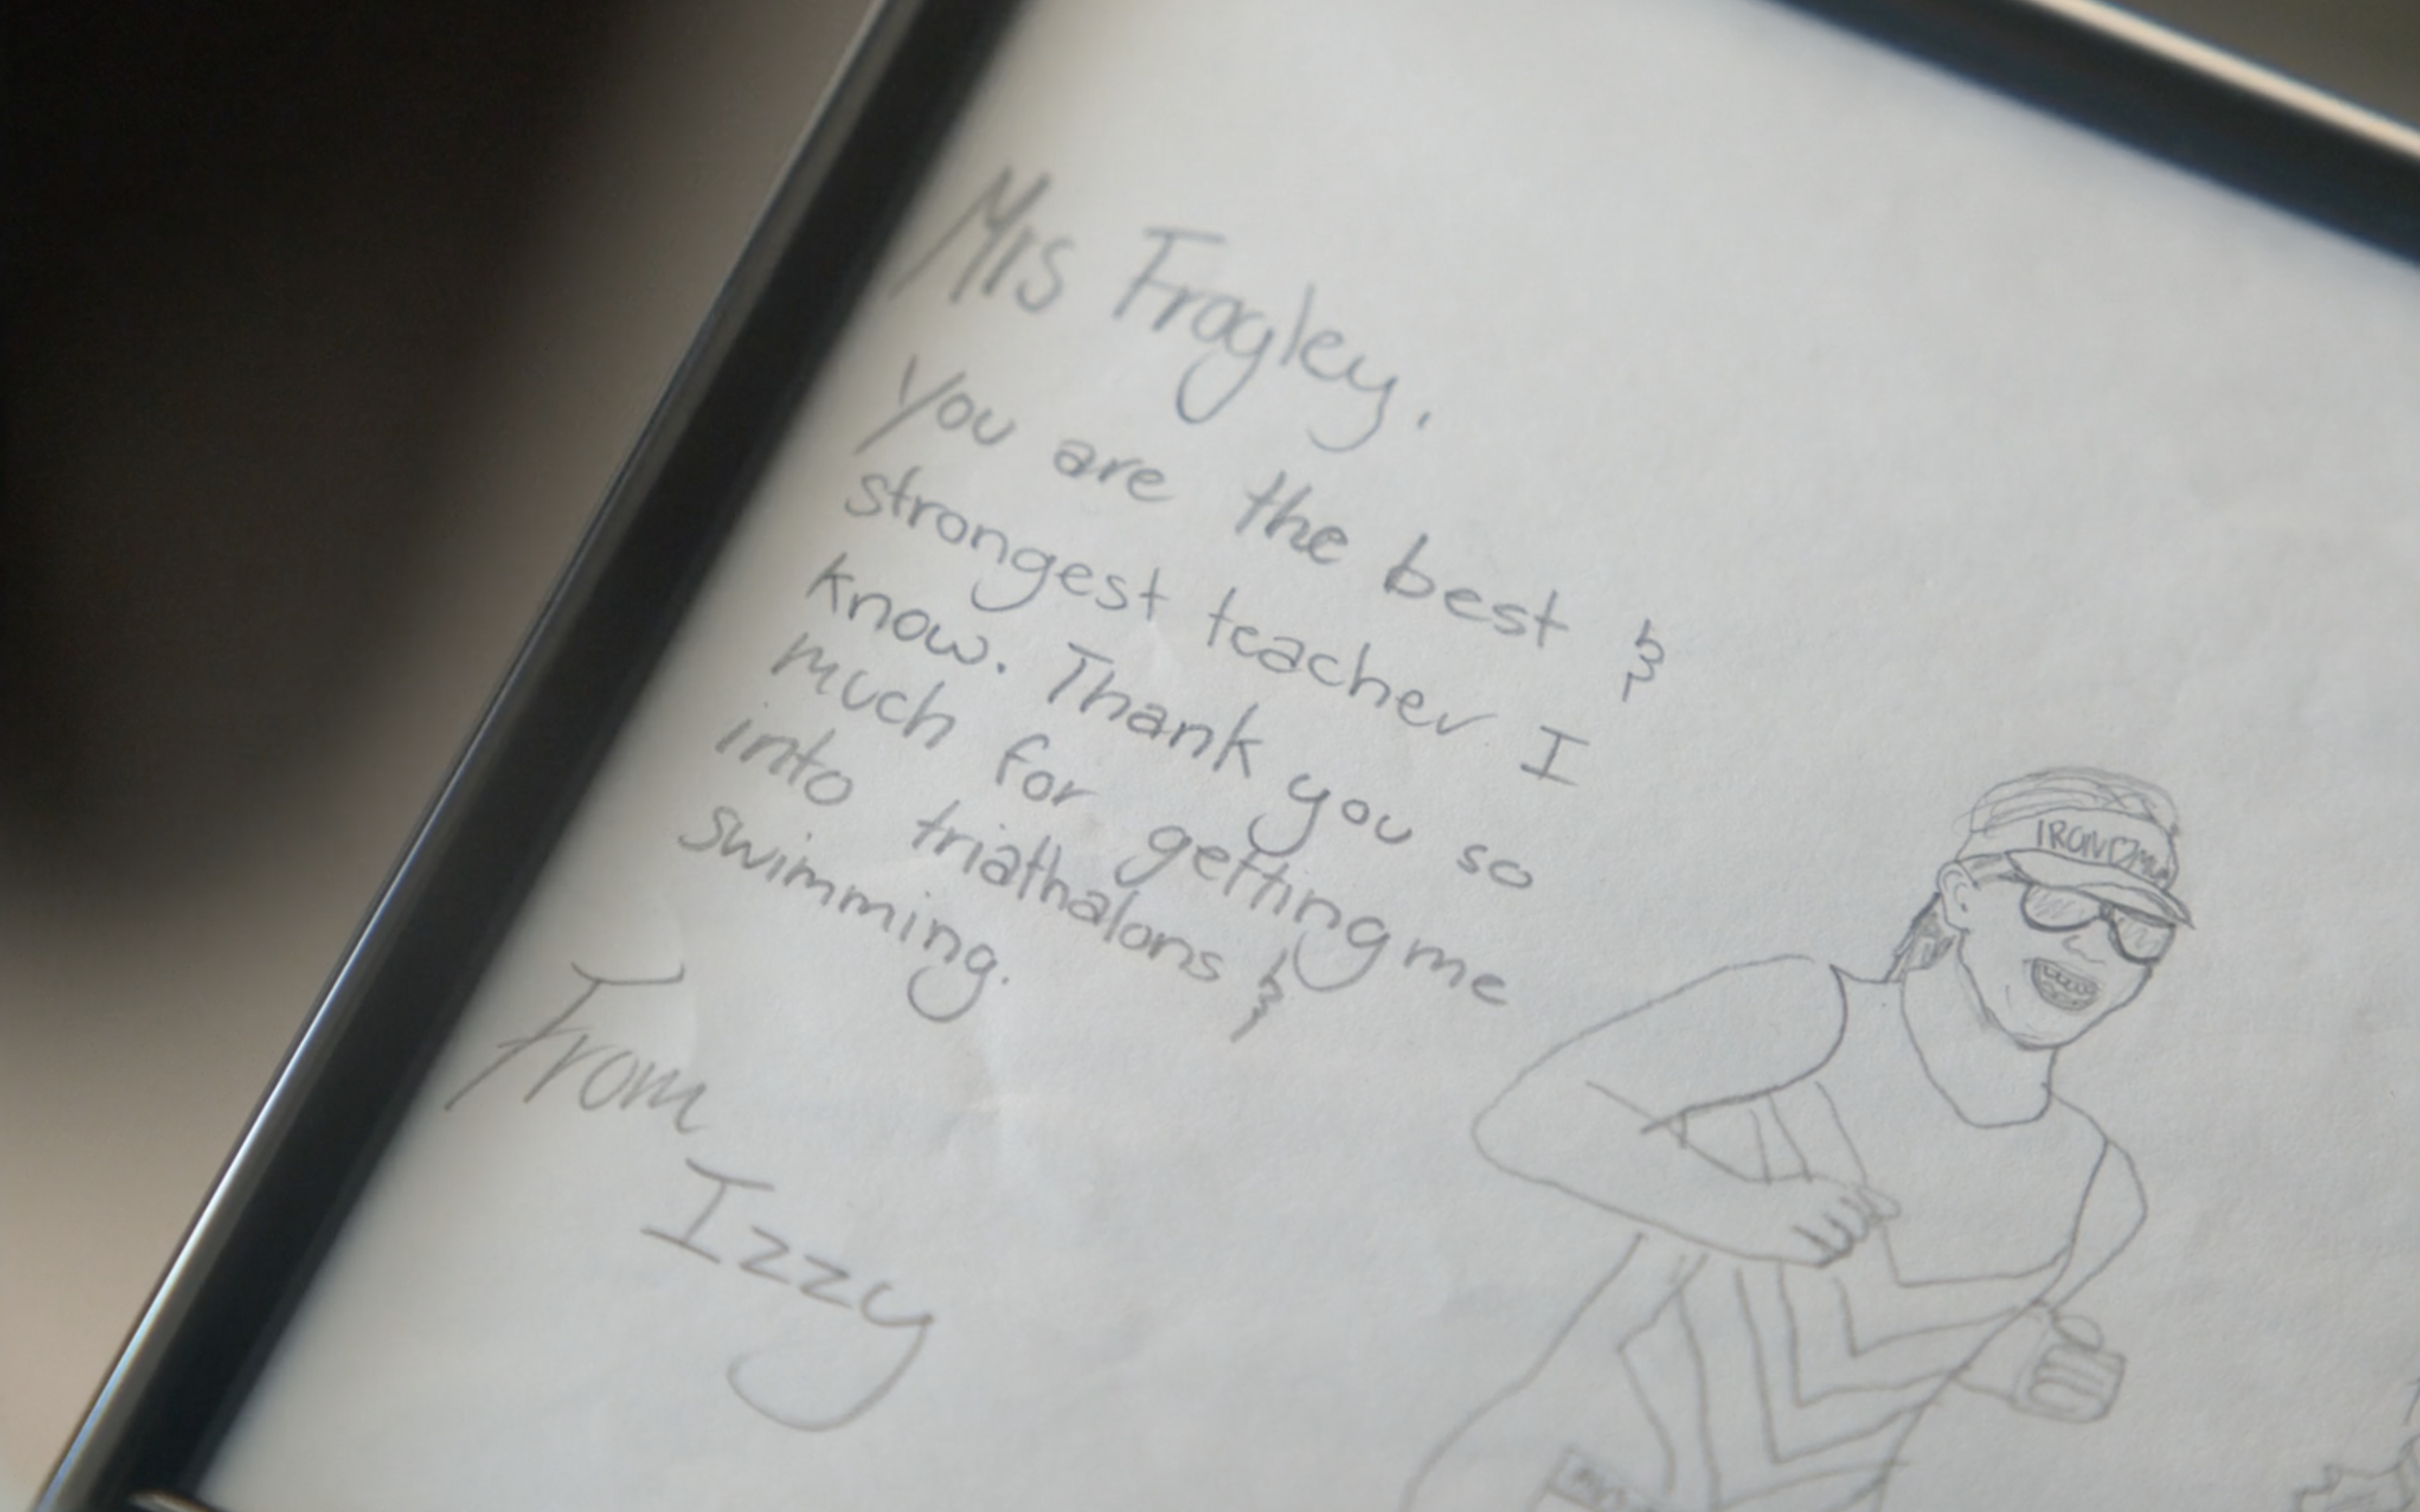 Mrs Fragley,
You are the best &
strongest teacher I
know. Thank you so
much for getting me
into triathalons &
swimming.
From
Izzy